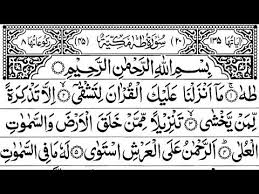 اٰيَاتُهَا ١٣٥ (٢٠) سُوْرَةُ طٰهٰ مَكِّيَّةٌ (٤٥) رُكُوْعَاتُهَا ٨
بِسْمِ اللّٰهِ الرَّحْمٰنِ الرَّحِيْمِ
طٰهٰ ۝١ مَاۤ اَنْزَلْنَا عَلَيْكَ الْقُرْاٰنَ لِتَشْقٰۤى ۝٢ اِلَّا تَذْكِرَةً
لِّمَنْ يَّخْشٰى ۝٣ تَنْزِيْلًا مِّمَّنْ خَلَقَ الْاَرْضَ وَالسَّمٰوٰتِ
الْعُلٰى ۝٤ اَلرَّحْمٰنُ عَلَى الْعَرْشِ اسْتَوٰى ۝٥ لَهٗ مَا فِى السَّمٰوٰتِ